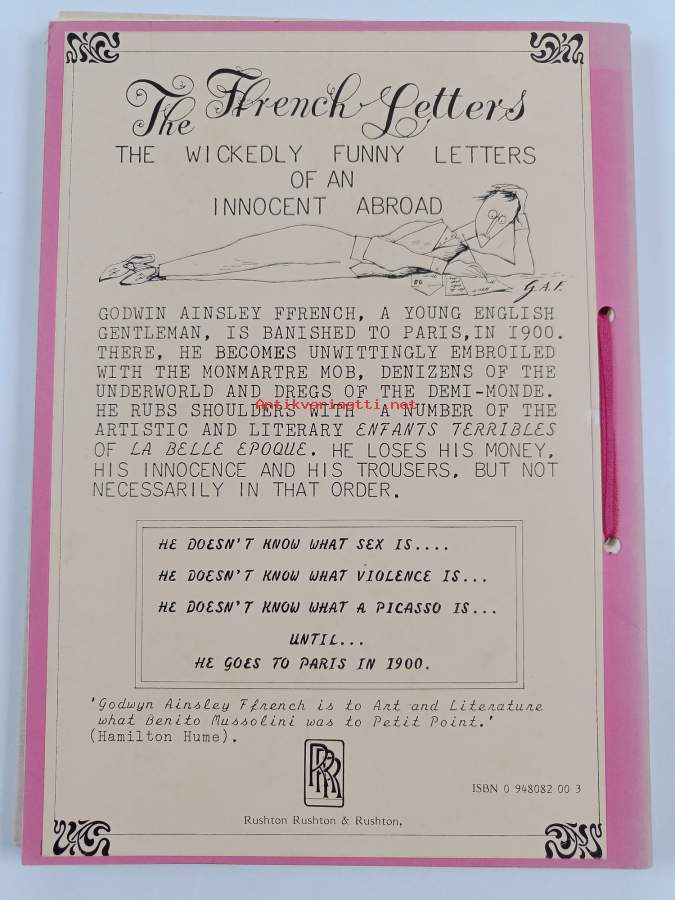 The Ffrench Letters
THE WICKEDLY FUNNY LETTERS
OF AN
INNOCENT ABROAD
G.A.F.
GODWIN AINSLEY FFRENCH, A YOUNG ENGLISH
GENTLEMAN, IS BANISHED TO PARIS, IN 1900.
THERE, HE BECOMES UNWITTINGLY EMBROILED
WITH THE MONMARTRE MOB, DENIZENS OF THE
UNDERWORLD AND DREGS OF THE DEMI-MONDE.
HE RUBS SHOULDERS WITH A NUMBER OF THE
Antikvarimatti.net
ARTISTIC AND LITERARY ENFANTS TERRIBLES
OF LA BELLE EPOQUE. HE LOSES HIS MONEY,
HIS INNOCENCE AND HIS TROUSERS, BUT NOT
NECESSARILY IN THAT ORDER.
HE DOESN'T KNOW WHAT SEX IS....
HE DOESN'T KNOW WHAT VIOLENCE IS...
HE DOESN'T KNOW WHAT A PICASSO IS...
UNTIL...
HE GOES TO PARIS IN 1900.
'Godwyn Ainsley Ffrench is to Art and Literature
what Benito Mussolini was to Petit Point.'
(Hamilton Hume).
RRR
ISBN 0 948082 00 3
Rushton Rushton & Rushton,